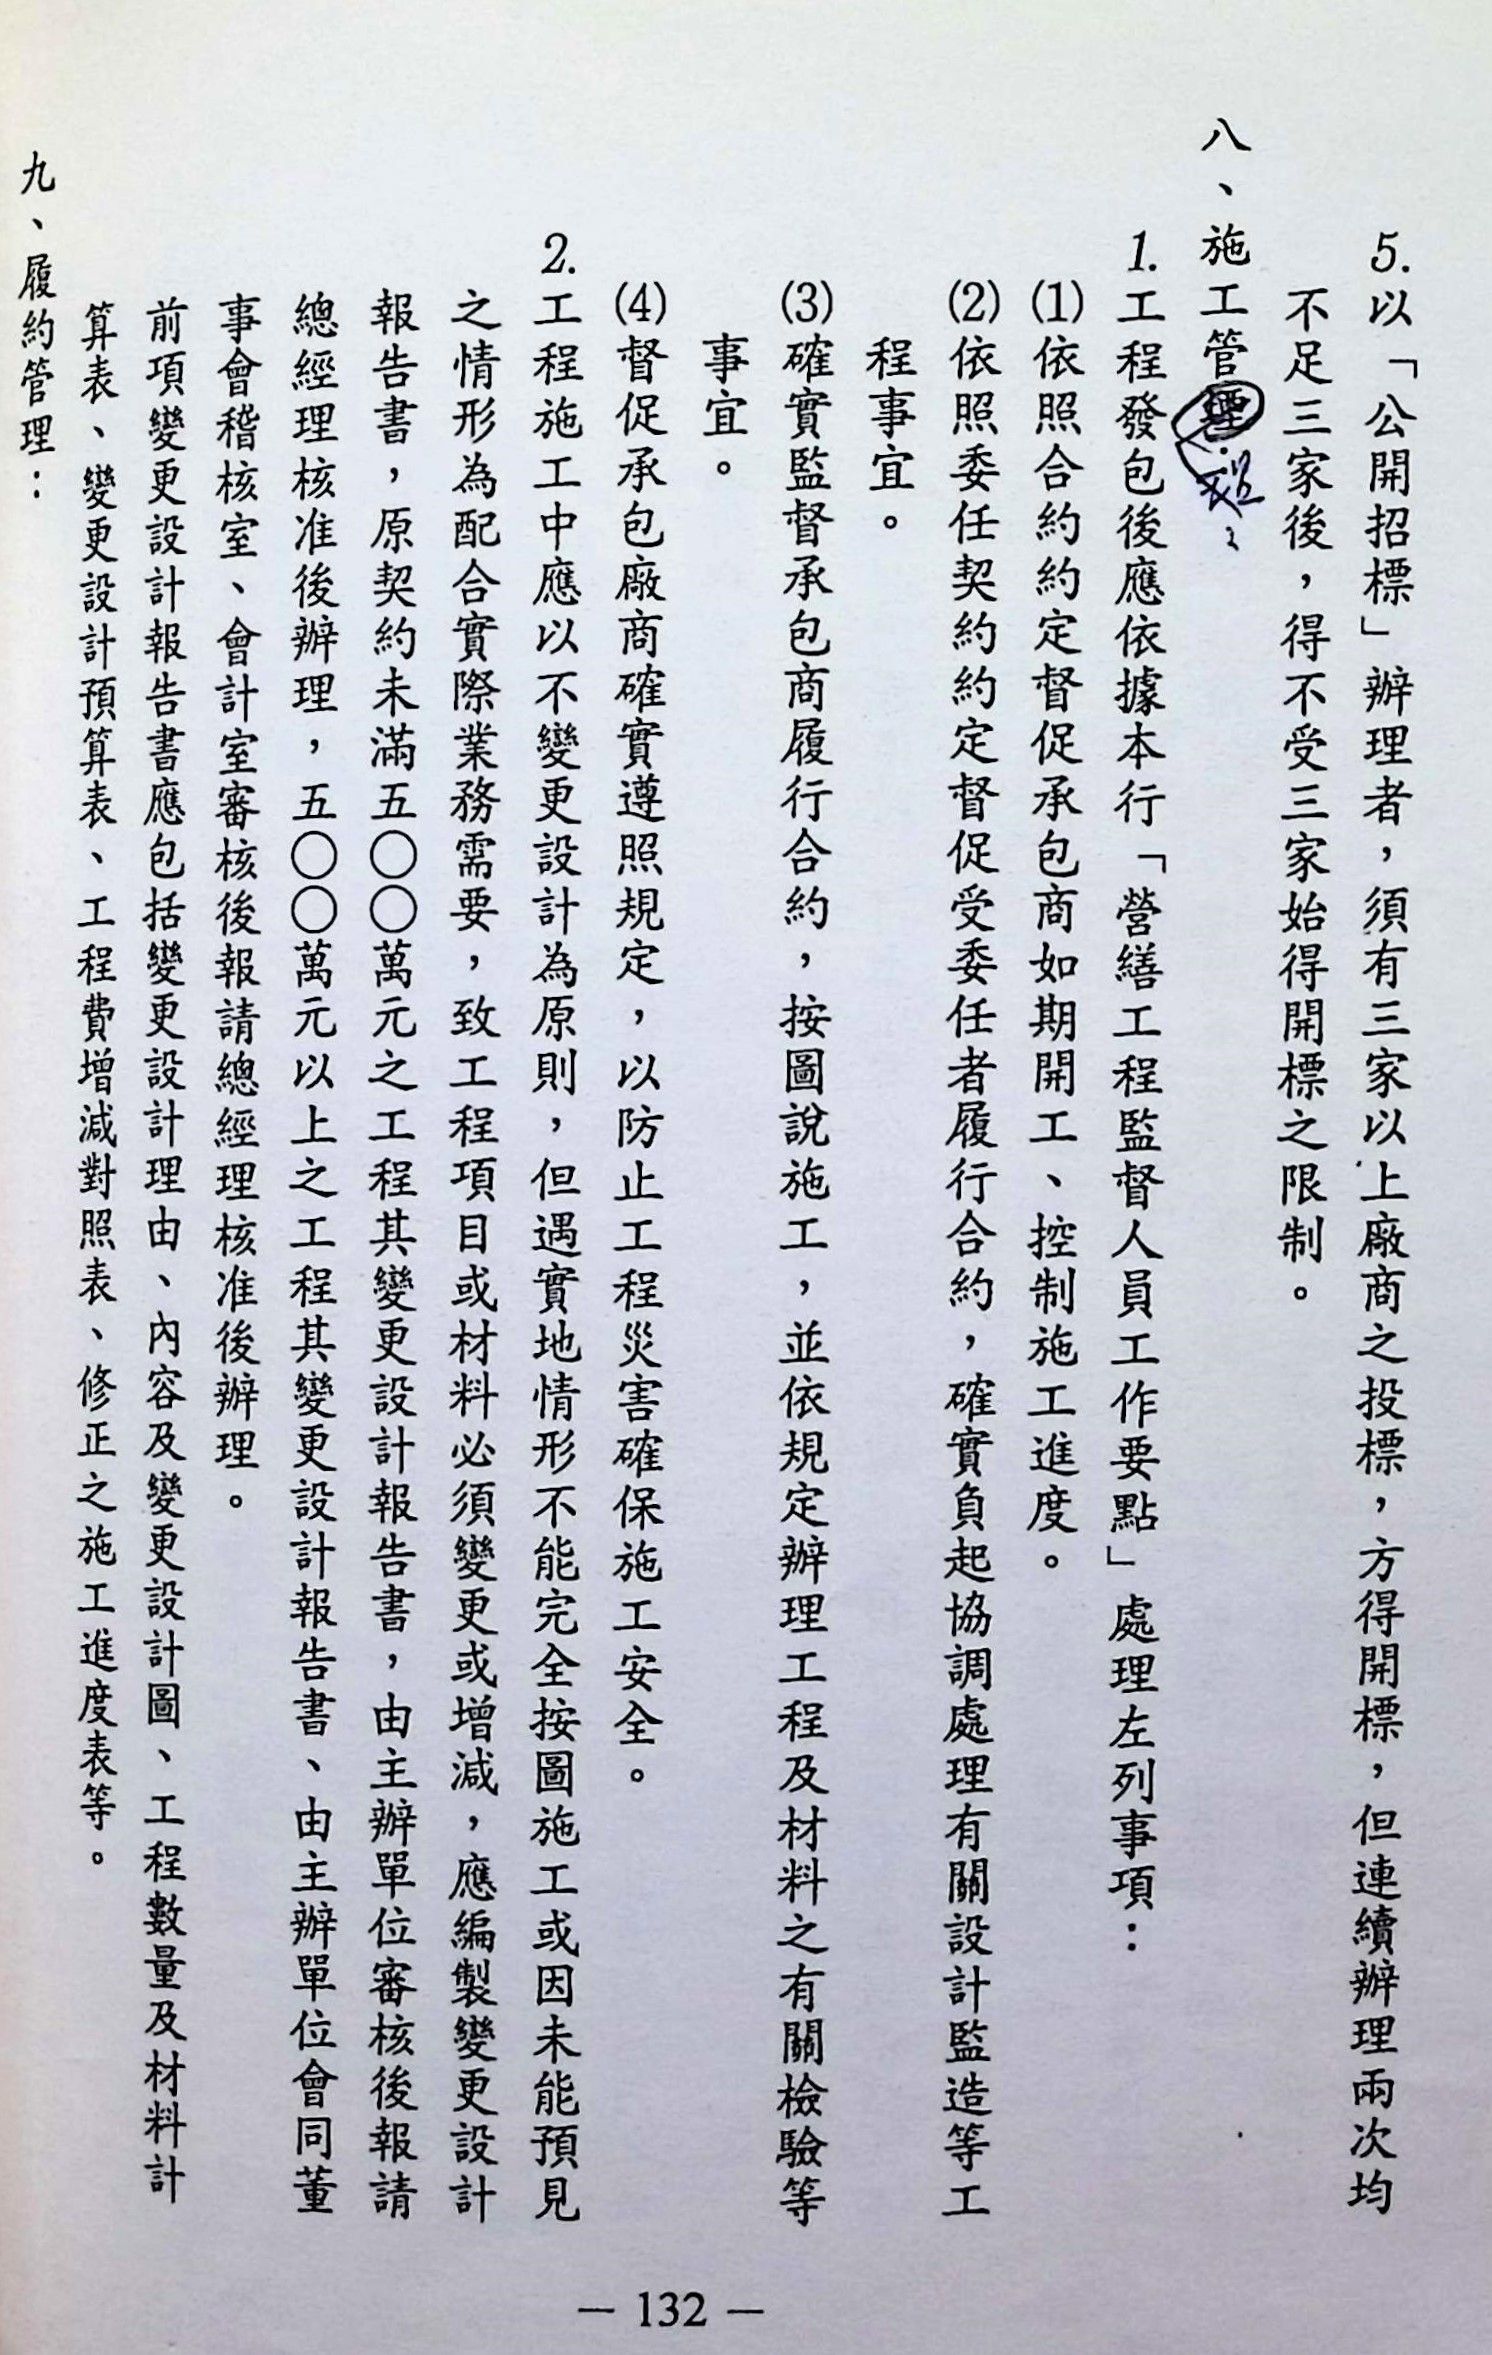 5.以「公開招標」辦理者，須有三家以上廠商之投標，方得開標，但連續辦理兩次均
不足三家後，得不受三家始得開標之限制。
八、施工管理：
1.工程發包後應依據本行「營繕工程監督人員工作要點」處理左列事項：
(1)依照合約約定督促承包商如期開工、控制施工進度。
(2)依照委任契約約定督促受委任者履行合約，確實負起協調處理有關設計監造等工
程事宜。
(3)確實監督承包商履行合約，按圖說施工，並依規定辦理工程及材料之有關檢驗等
事宜。
(4)督促承包廠商確實遵照規定，以防止工程災害確保施工安全。
2.工程施工中應以不變更設計為原則，但遇實地情形不能完全按圖施工或因未能預見
之情形為配合實際業務需要，致工程項目或材料必須變更或增減，應編製變更設計
報告書，原契約未滿五〇〇萬元之工程其變更設計報告書，由主辦單位審核後報請
總經理核准後辦理，五〇〇萬元以上之工程其變更設計報告書、由主辦單位會同董
事會稽核室、會計室審核後報請總經理核准後辦理。
前項變更設計報告書應包括變更設計理由、內容及變更設計圖、工程數量及材料計
算表、變更設計預算表、工程費增減對照表、修正之施工進度表等。
九、履約管理：
— 132 —